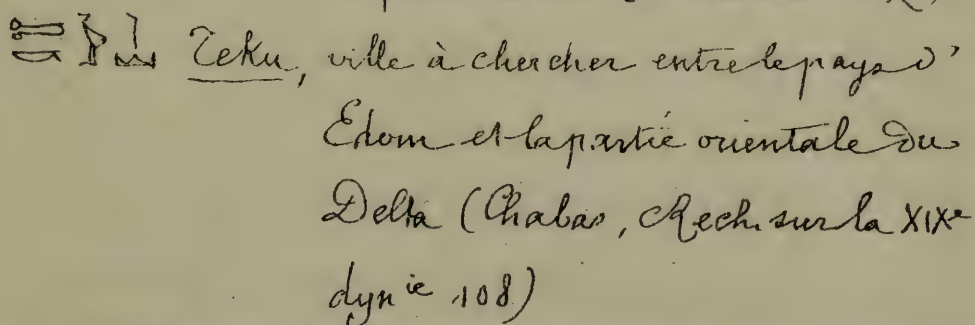 Teku, ville à chercher entre le pays d'
Edom et la partie orientale du
Delta (Chabas, Rech. sur la XIXe
dyn ie 108)